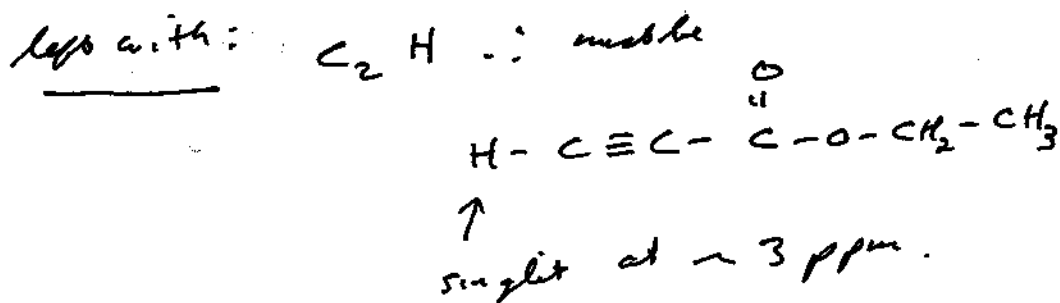 left with: C₂ H ∴ must be
O
H - C ≡ C - C - O - CH₂ - CH₃
↑
singlet at ~ 3 ppm.